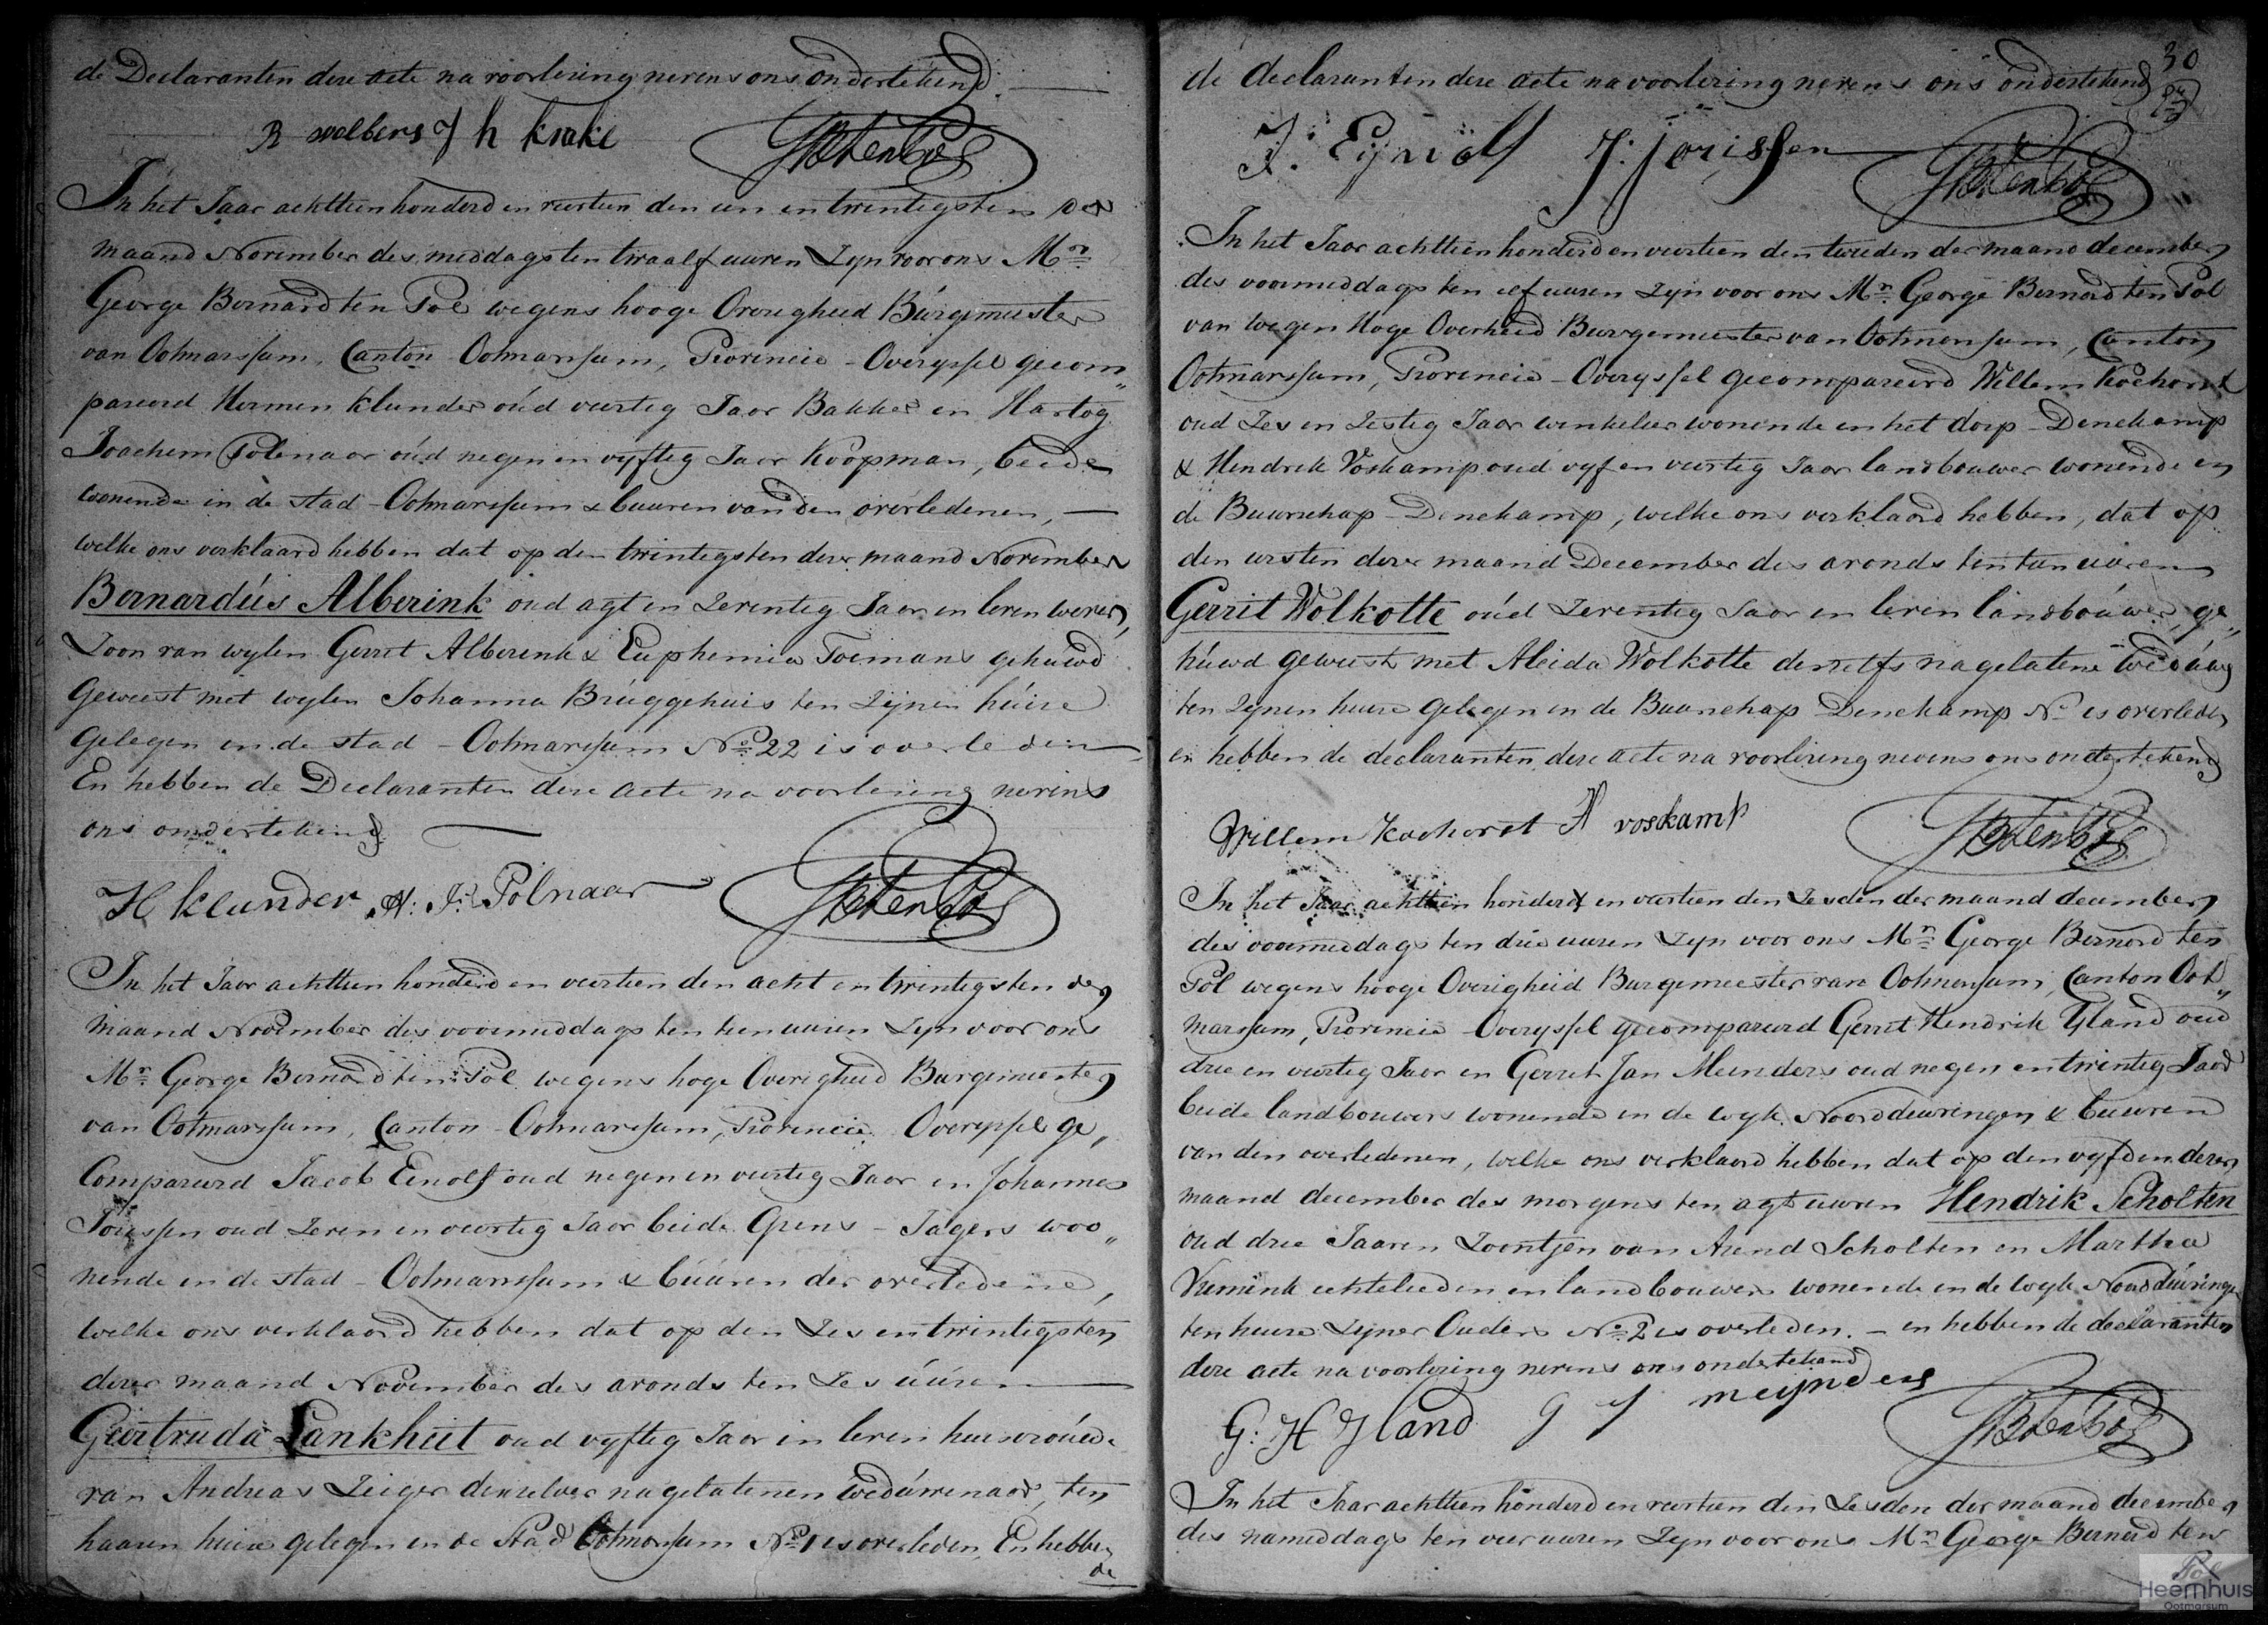 de Declaranten dese acte na voorlesing nevens ons ondertekend.
R wolbers J h kroke GBtenPol
In het Jaar achttienhonderd en veertien den een en twintigsten der
maand November des middags ten twaalf uuren Zyn voor ons Mr.
George Bernard ten Pol wegens hooge Overigheid Burgemeester
van Ootmarssum, Canton Ootmarssum, Provincie - Overyssel gecom„
pareerd Hermen Klunder oud veertig Jaar Bakker en Hartog
Joachem Polenaar oud negen en vyftig Jaar Koopman, beide
wonende in de stad - Ootmarssum & buuren van den overledenen, —
welke ons verklaard hebben dat op den twintigsten deser maand November
Bernardus Alberink oud agt en Zeventig Jaar in leven wever,
Zoon van wylen Gerrit Alberink & Euphemia Toemans gehuwd
geweest met wylen Johanna Bruggehuis ten Zijnen huise
gelegen in de stad - Ootmarssum No. 22 is overleden —
En hebben de Declaranten dese acte na voorlesing nevens
ons ondertekend —
H klunder H: J: Polnaar GBtenPol
In het Jaar achttien honderd en veertien den acht en twintigsten der
maand November des voormiddags ten tien uuren Zyn voor ons
Mr. George Bernard ten Pol wegens hoge Overigheid Burgemeester
van Ootmarssum, Canton Ootmarssum, Provincie Overyssel ge„
Compareerd Jacob Einolf oud negen en veertig Jaar en Johannes
Jorissen oud Zeven en veertig Jaar beide Grens - Jagers woo„
nende in de stad - Ootmarssum & buuren der overledene,
welke ons verklaard hebben dat op den Zes en twintigsten
deser maand November des avonds ten Zes uuren —
Geertruda Lankheet oud vyftig Jaar in leven huisvrouw
van Andreas Zeiger denzelver nagelatenen weduwenaar, ten
haaren huise gelegen in de Stad Ootmarssum No. 1 is overleden, En hebben
de
30
de declaranten dese acte na voorlezing nevens ons ondertekend
J: Eijnolf J: jorissen GBtenPol
In het Jaar achttienhonderd en veertien den tweeden der maand december
des voormiddags ten elf uuren Zyn voor ons Mr. George Bernard ten Pol
van wegen Hoge Overheid Burgemeester van Ootmarssum, Canton
Ootmarssum, Provincie - Overyssel gecompareerd Willem Kochorst
oud Zes en Zestig Jaar winkelier wonende in het dorp - Denekamp
& Hendrik Voskamp oud vyf en veertig Jaar landbouwer wonende in
de Buurschap - Denekamp, welke ons verklaard hebben, dat op
den eersten deser maand December des avonds ten tien uuren
Gerrit Wolkotte oud Zeventig Jaar in leven landbouwer, ge„
huwd geweest met Aleida Wolkotte deszelfs nagelatene weduwe
ten Zynen huise gelegen in de Buurschap Denekamp No. is overleden
en hebben de declaranten dese acte na voorlesing nevens ons ondertekend
Willem Kochorst H voskamp GBtenPol
In het Jaar achttien honderd en veertien den Zesden der maand december
des voormiddags ten drie uuren Zyn voor ons Mr. George Bernard ten
Pol wegens hooge Overigheid Burgemeester van Ootmarssum, Canton Oot„
marssum, Provincie - Overyssel gecompareerd Gerrit Hendrik Yland oud
drie en veertig Jaar en Gerrit Jan Meinders oud negen en twintig Jaar
beide landbouwers wonende in de wyk Noorddeuringen & buuren
van den overledenen, welke ons verklaard hebben dat op den vyfden deser
maand december des morgens ten agt uuren Hendrik Scholten
oud drie Jaaren Zoontjen van Arend Scholten en Martha
Vremink echtelieden en landbouwers wonende in de wyk Noorddeuringen
ten huise Zyner Ouders No. 2 is overleden. — en hebben de declaranten
dese acte na voorlezing nevens ons ondertekend
G: H Yland G J meijnders GBtenPol
In het Jaar achttien honderd en veertien den Zesden der maand december
des namiddags ten vier uuren Zyn voor ons Mr. George Bernard ten
Pol
Heemhuis
Ootmarsum